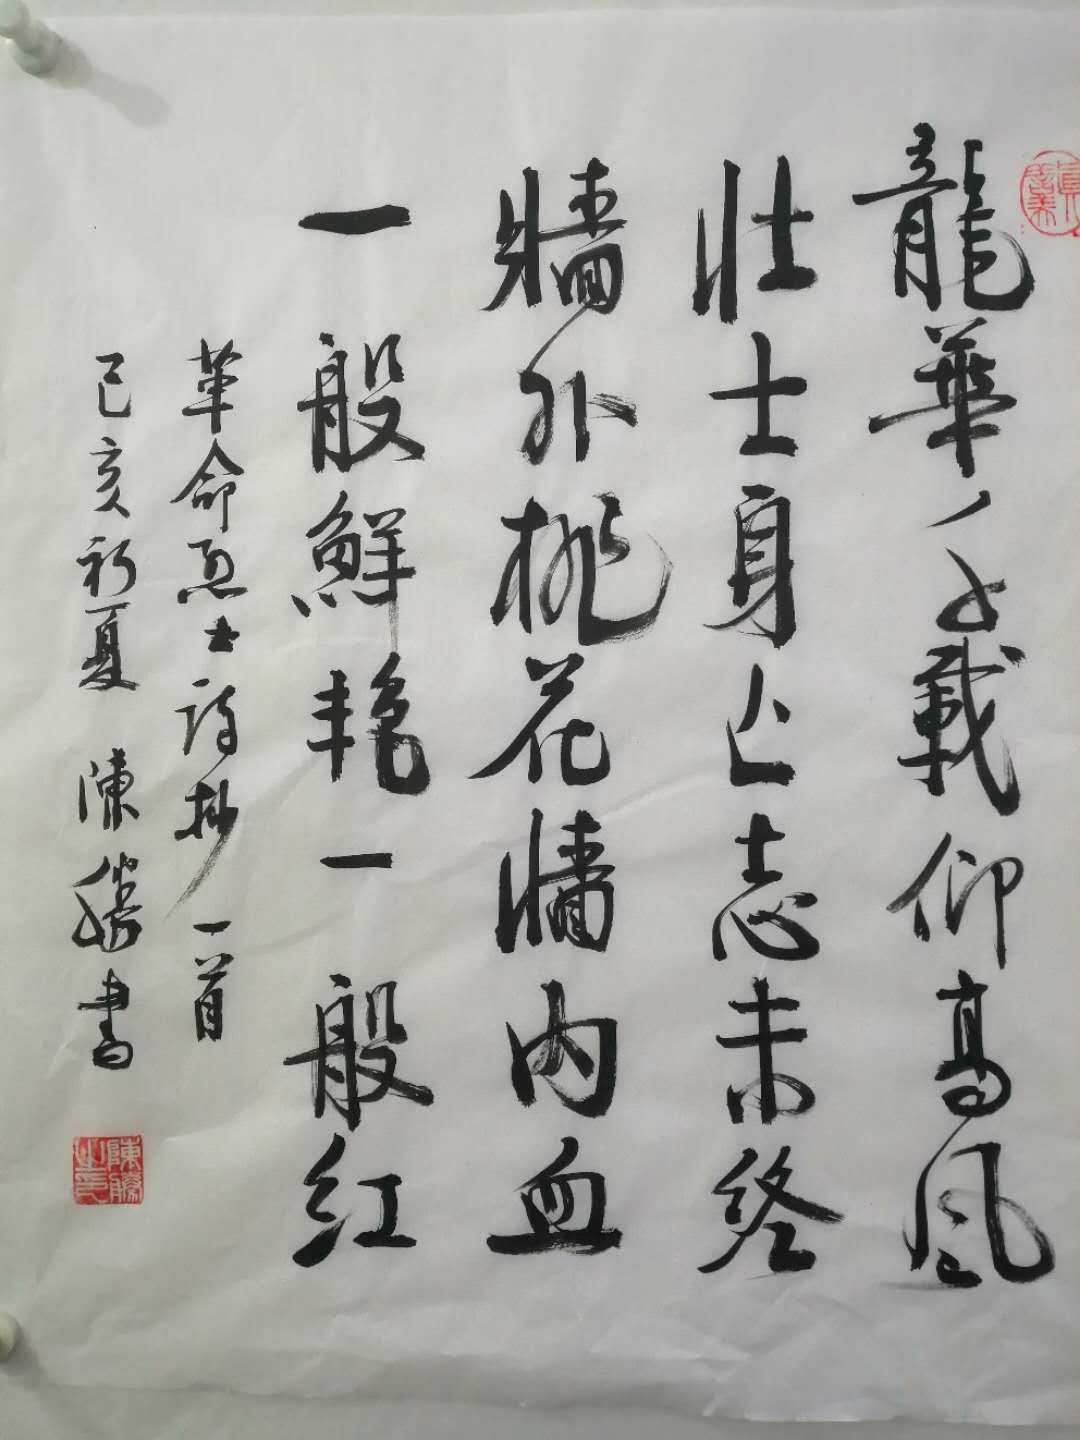 龍華千載仰高風
壯士身亡志未終
牆外桃花牆内血
一般鮮艳一般红
革命烈士詩抄一首
己亥初夏 陳勝書
陳勝之印